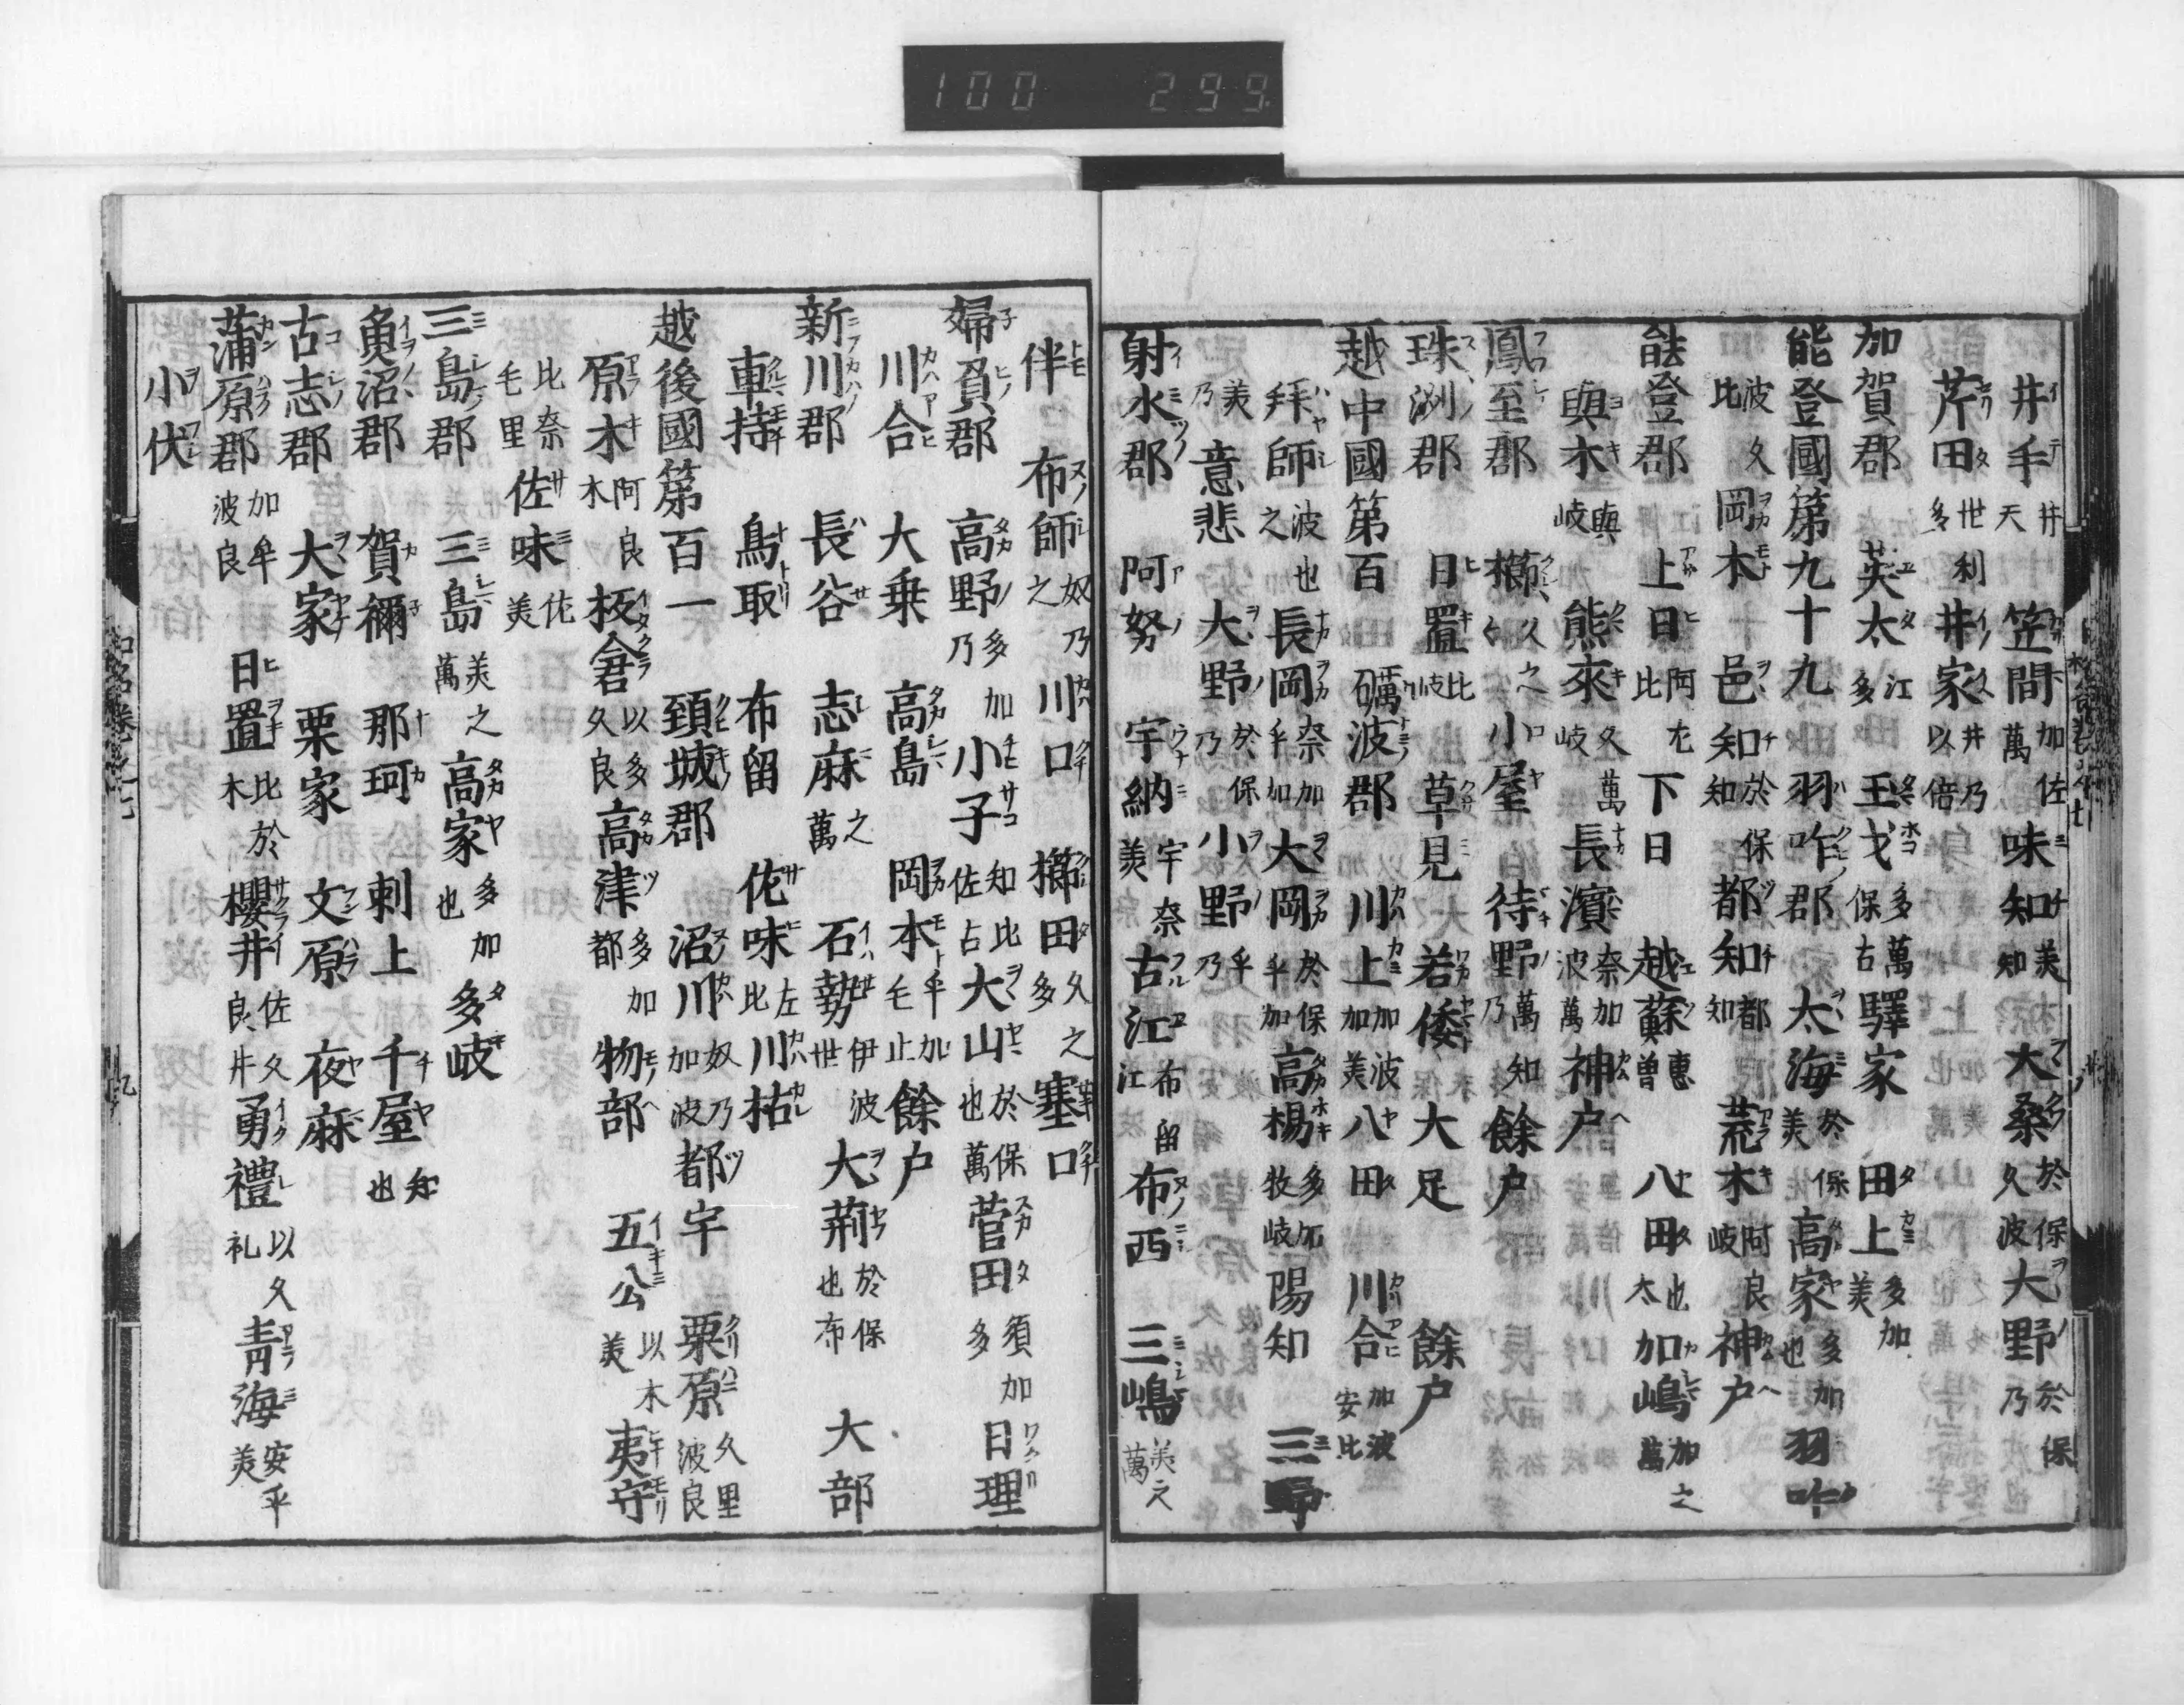 100 299
井手 井天 笠間 加佐萬 味知 美知 大桑 於保久波 大野 於保乃
芹田 世利多 井家 井乃以倍
加賀郡 英太 江多 玉戈 多萬保古 驛家 田上 多加美
能登國第九十九 羽咋郡 太海 於保美 高家 多加也 羽咋
波久比 岡木 邑知 於保知 都知 都知 荒木 阿良岐 神戸
能登郡 上日 阿左比 下日 越蘇 惠曽 八田 也太 加嶋 加之萬
與木 與岐 熊來 久萬岐 長濱 奈加波萬 神戸
鳳至郡 櫛 久之 小屋 待野 萬知乃 餘戸
珠洲郡 日置 比岐 草見 若倭 大足 餘戸
越中國第百 礪波郡 川上 加波加美 八田 川合 加波安比
拜師 波也之 長岡 奈加乎加 大岡 於保乎加 高楊 多加牧岐 陽知 三野
美乃 意悲 大野 於保乃 小野 乎乃
射水郡 阿努 宇納 宇奈美 古江 布留江 布西 三嶋 美之萬
伴 布師 奴乃之 川口 櫛田 久之多 塞口
婦負郡 高野 多加乃 小子 知比佐古 大山 於保也萬 菅田 須加多 日理
川合 大乗 高島 岡本 乎加毛止 餘戸
新川郡 長谷 志麻 之萬 石勢 伊波世 大荊 於保也布 大部
車持 鳥取 布留 佐味 左比 川枯
越後國第百一 頚城郡 沼川 奴乃加波 都宇 栗原 久里波良
原木 阿良木 板倉 以多久良 高津 多加都 物部 五公 以木美 夷守
比奈毛里 佐味 佐美
三島郡 三島 美之萬 高家 多加也 多岐
魚沼郡 賀禰 那珂 刺上 千屋 知也
古志郡 大家 栗家 文原 夜麻
蒲原郡 加牟波良 日置 比於木 櫻井 佐久良井 勇禮 以久礼 青海 安乎美
小伏